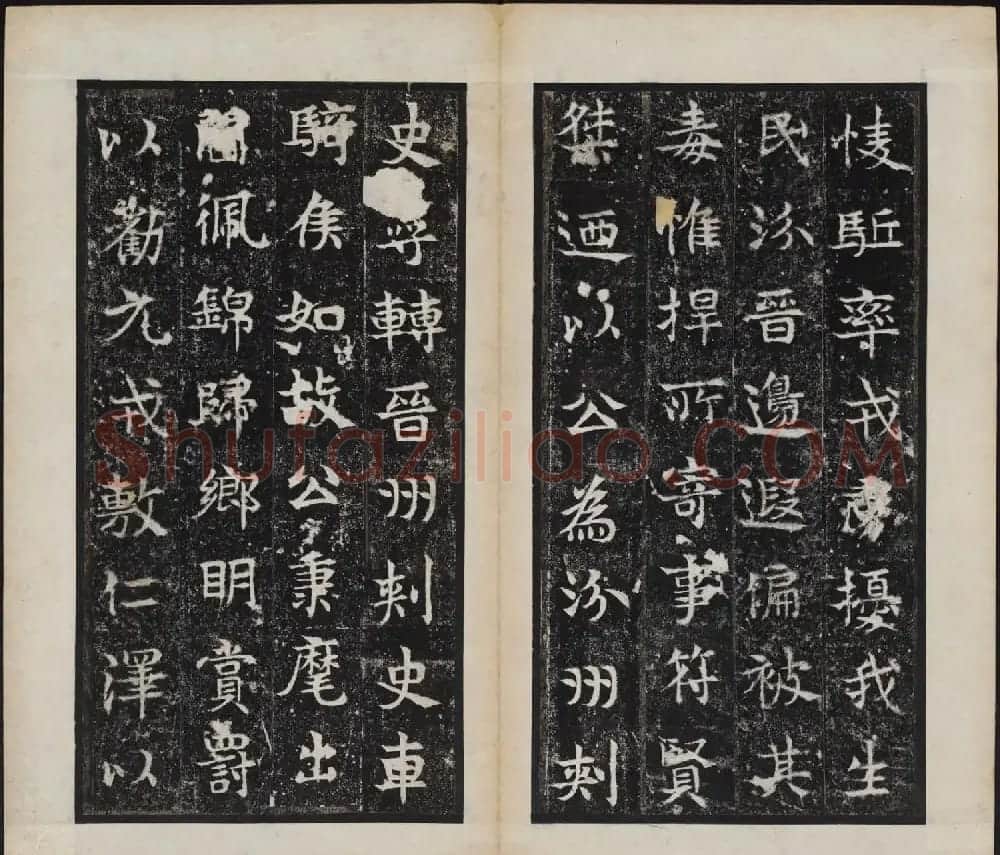 悽駈率戎夷擾我生
民汾晉邊遐偏被其
毒惟捍所寄事符賢
桀迺以公為汾州刾
史尋轉晉州刾史車
騎侯如故公秉麾出
閫佩錦歸鄉明賞罸
以勸九戎敷仁澤以
Shufaziliao.COM